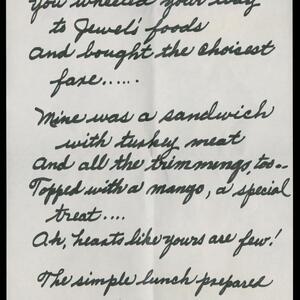 You wheeled your way
to Jewel's foods
and bought the choicest
fare.....
Mine was a sandwich
with turkey meat
And all the trimmings, too--
Topped with a mango, a special
treat....
Ah, hearts like yours are few!
The simple lunch prepared